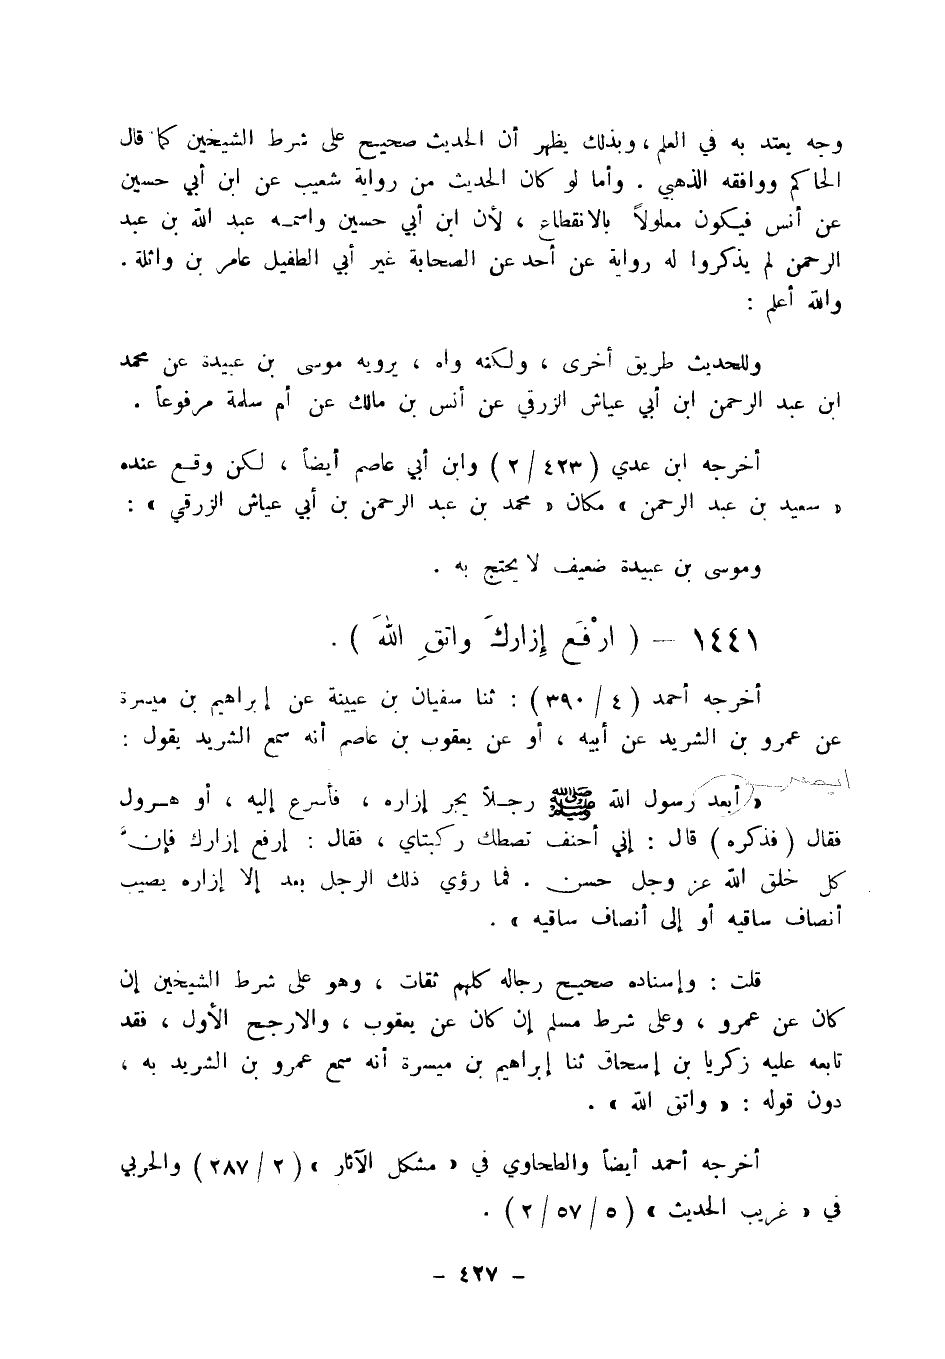 وجه يعتد به في العلم ، وبذلك يظهر أن الحديث صحيح على شرط الشيخين كما قال
الحاكم ووافقه الذهبي . وأما لو كان الحديث من رواية شعيب عن ابن أبي حسين
عن أنس فيكون معلولاً بالانقطاع ، لأن ابن أبي حسين واسمه عبد الله بن عبد
الرحمن لم يذكروا له رواية عن أحد عن الصحابة غير أبي الطفيل عامر بن واثلة .
والله أعلم :
وللحديث طريق أخرى ، ولكنه واه ، يرويه موسى بن عبيدة عن محمد
ابن عبد الرحمن ابن أبي عياش الزرقي عن أنس بن مالك عن أم سلمة مرفوعاً .
أخرجه ابن عدي ( ٤٢٣ / ٢ ) وابن أبي عاصم أيضاً ، لكن وقع عنده
« سعيد بن عبد الرحمن » مكان « محمد بن عبد الرحمن بن أبي عياش الزرقي » :
وموسى بن عبيدة ضعيف لا يحتج به .
١٤٤١ - ( ارْفَع إِزاركَ واتقِ اللهَ ) .
أخرجه أحمد ( ٤ / ٣٩٠ ) : ثنا سفيان بن عيينة عن إبراهيم بن ميسرة
عن عمرو بن الشريد عن أبيه ، أو عن يعقوب بن عاصم أنه سمع الشريد يقول :
« أبعد رسول الله ﷺ رجلاً يجر إزاره ، فأسرع إليه ، أو هرول
فقال ( فذكره ) قال : إني أحنف تصطك ركبتاي ، فقال : إرفع إزارك فإنَّ
كل خلق الله عز وجل حسن . فما رؤي ذلك الرجل بعد إلا إزاره يصيب
أنصاف ساقيه أو إلى أنصاف ساقيه » .
قلت : وإسناده صحيح رجاله كلهم ثقات ، وهو على شرط الشيخين إن
كان عن عمرو ، وعلى شرط مسلم إن كان عن يعقوب ، والارجح الأول ، فقد
تابعه عليه زكريا بن إسحاق ثنا إبراهيم بن ميسرة أنه سمع عمرو بن الشريد به ،
دون قوله : « واتق الله » .
أخرجه أحمد أيضاً والطحاوي في « مشكل الآثار » ( ٢ / ٢٨٧ ) والحربي
في « غريب الحديث » ( ٥ / ٥٧ / ٢ ) .
- ٤٢٧ -